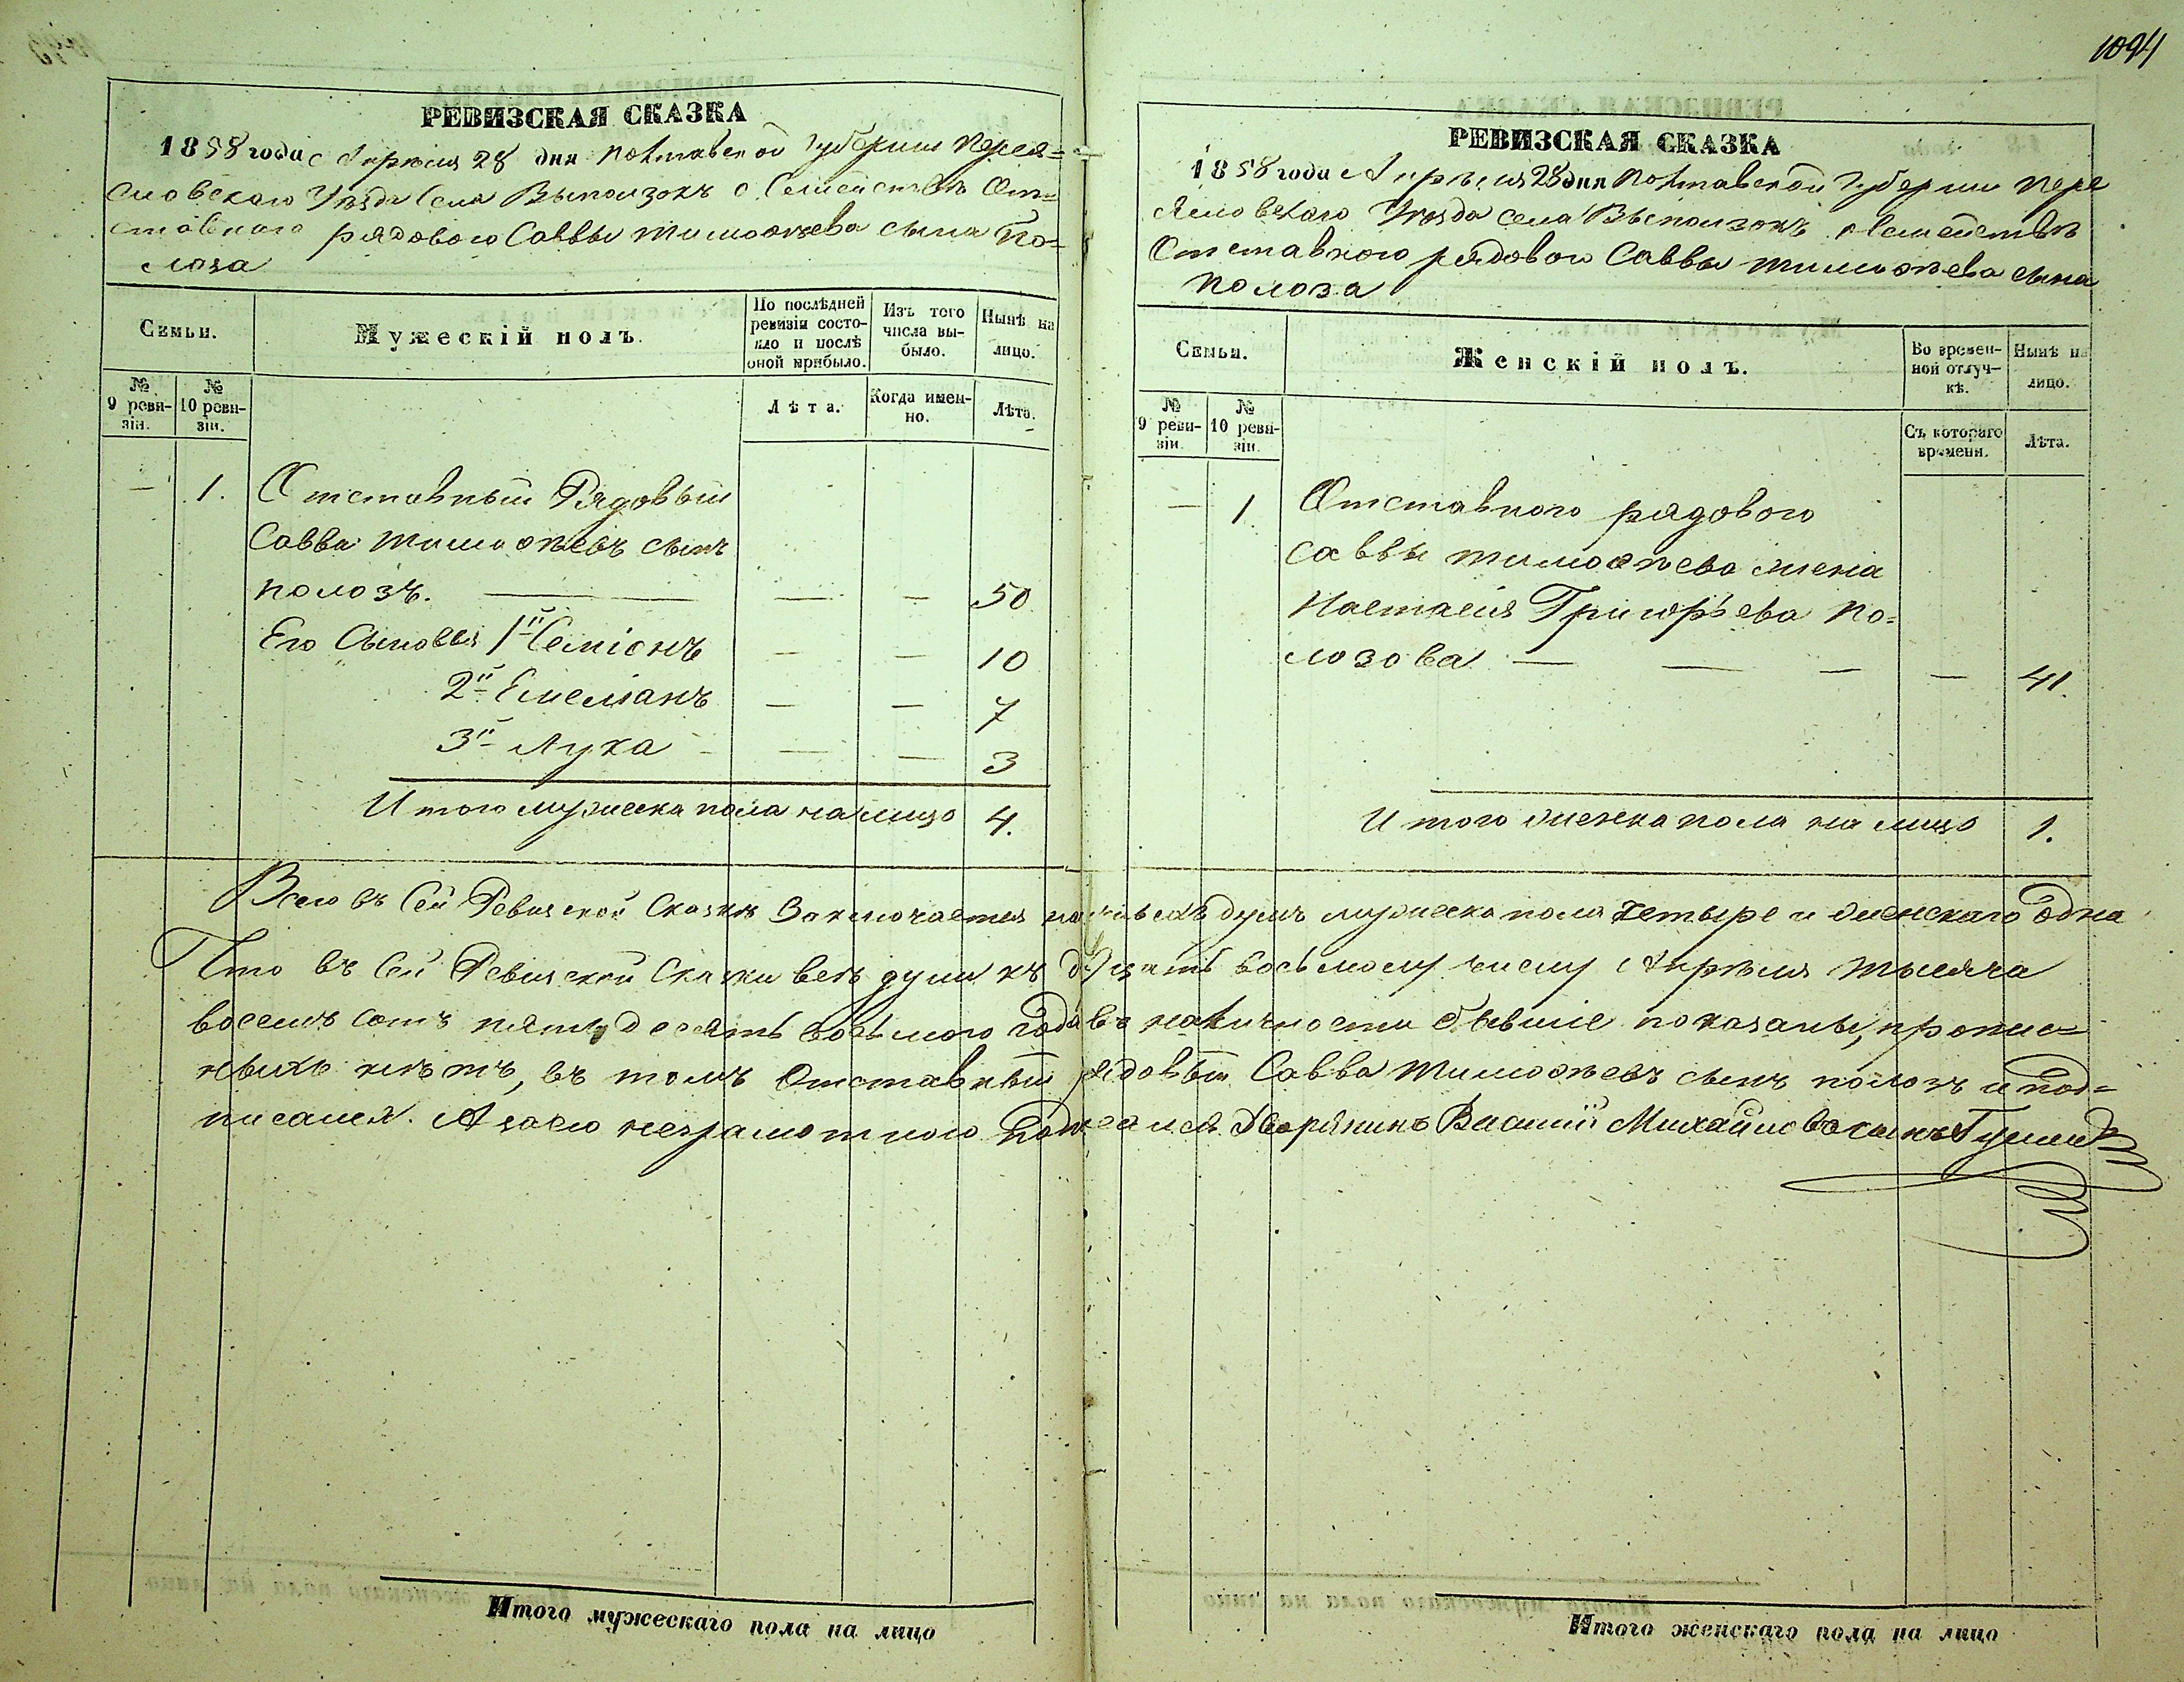 1094
РЕВИЗСКАЯ СКАЗКА
1858 года Апрѣля 28 дня Полтавской Губерніи Перея=
словскаго Уѣзда Села Выползокъ о Семействѣ От=
ставнаго рядового Саввы Тимоѳѣева сына По=
лоза
Семьи.
Мужескій полъ.
По послѣдней ревизіи состояло и послѣ оной прибыло.
Изъ того числа выбыло.
Нынѣ на лицо.
№ 9 ревизіи.
№ 10 ревизіи.
Лѣта.
Когда именно.
Лѣта.
— 1. Отставный Рядовый
Савва Тимоѳѣевъ сынъ
Полозъ. — — — 50
Его Сыновья 1й Семіонъ — — 10
2й Емеліанъ — — 7
3й Лука — — 3
Итого мужеска пола налицо 4.
РЕВИЗСКАЯ СКАЗКА
1858 года Апрѣля 28 дня Полтавской Губерніи Пере
яслов­скаго Уѣзда села Выползокъ о семействѣ
Отставного рядового Саввы Тимоѳѣева сына
Полоза
Семьи.
Женскій полъ.
Во временной отлучкѣ.
Нынѣ на лицо.
№ 9 ревизіи.
№ 10 ревизіи.
Съ котораго времени.
Лѣта.
— 1 Отставного рядового
Саввы Тимоѳѣева жена
Настасія Григорьева По=
лозова — — — — 41.
Итого женска пола на лицо 1.
Всего въ Сей Ревизской Сказкѣ Заключается наличныхъ душъ мужеска пола четыре и женскаго одна
Что въ Сей Ревизской Сказки всѣ души къ двацать восьмому числу Апрѣля тысяча
восемь сотъ пятьдесятъ восьмого года въ наличности бывшіе показаны, пропис=
ныхъ нѣтъ, въ томъ Отставный рядовый Савва Тимоѳѣевъ сынъ Полозъ и под=
писался. А за его неграмотного подписался дворянинъ Василій Михайловъ сынъ
Итого мужескаго пола на лицо
Итого женскаго пола на лицо